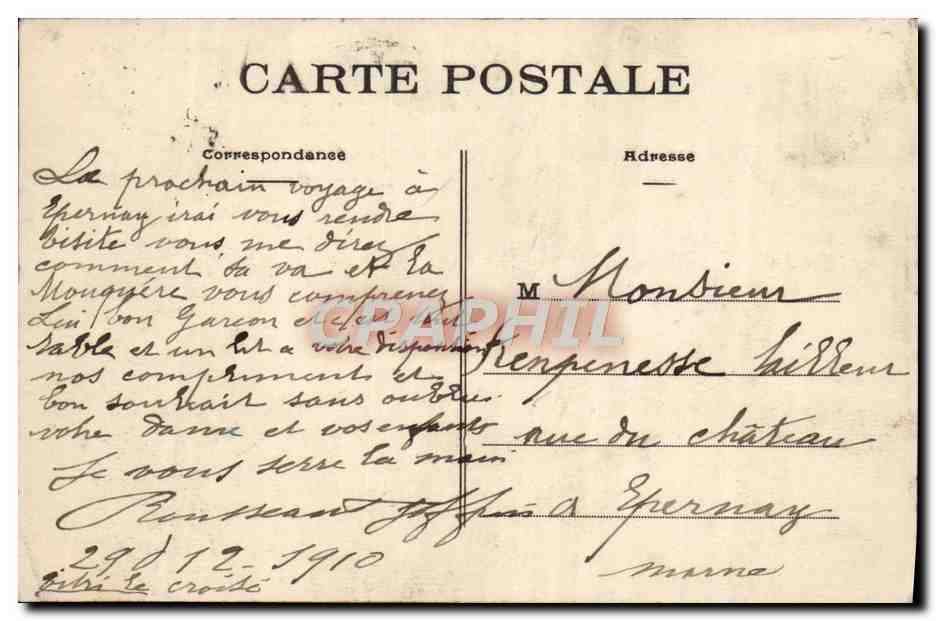 CARTE POSTALE
Correspondance
La prochain voyage à
Epernay irai vous rendre
visite vous me direz
comment sa va et la
Mouquère vous comprenez
bon Garcon et
table et un lit a votre disposition
nos compliments et
bon souhait sans oublier
votre dame et vos enfants
Je vous serre la main
Rousseau
29 d 12 - 1910
vitri le croisé
Adresse
M Monsieur
tailleur
rue du château
a Epernay
marne
CRAPHIL